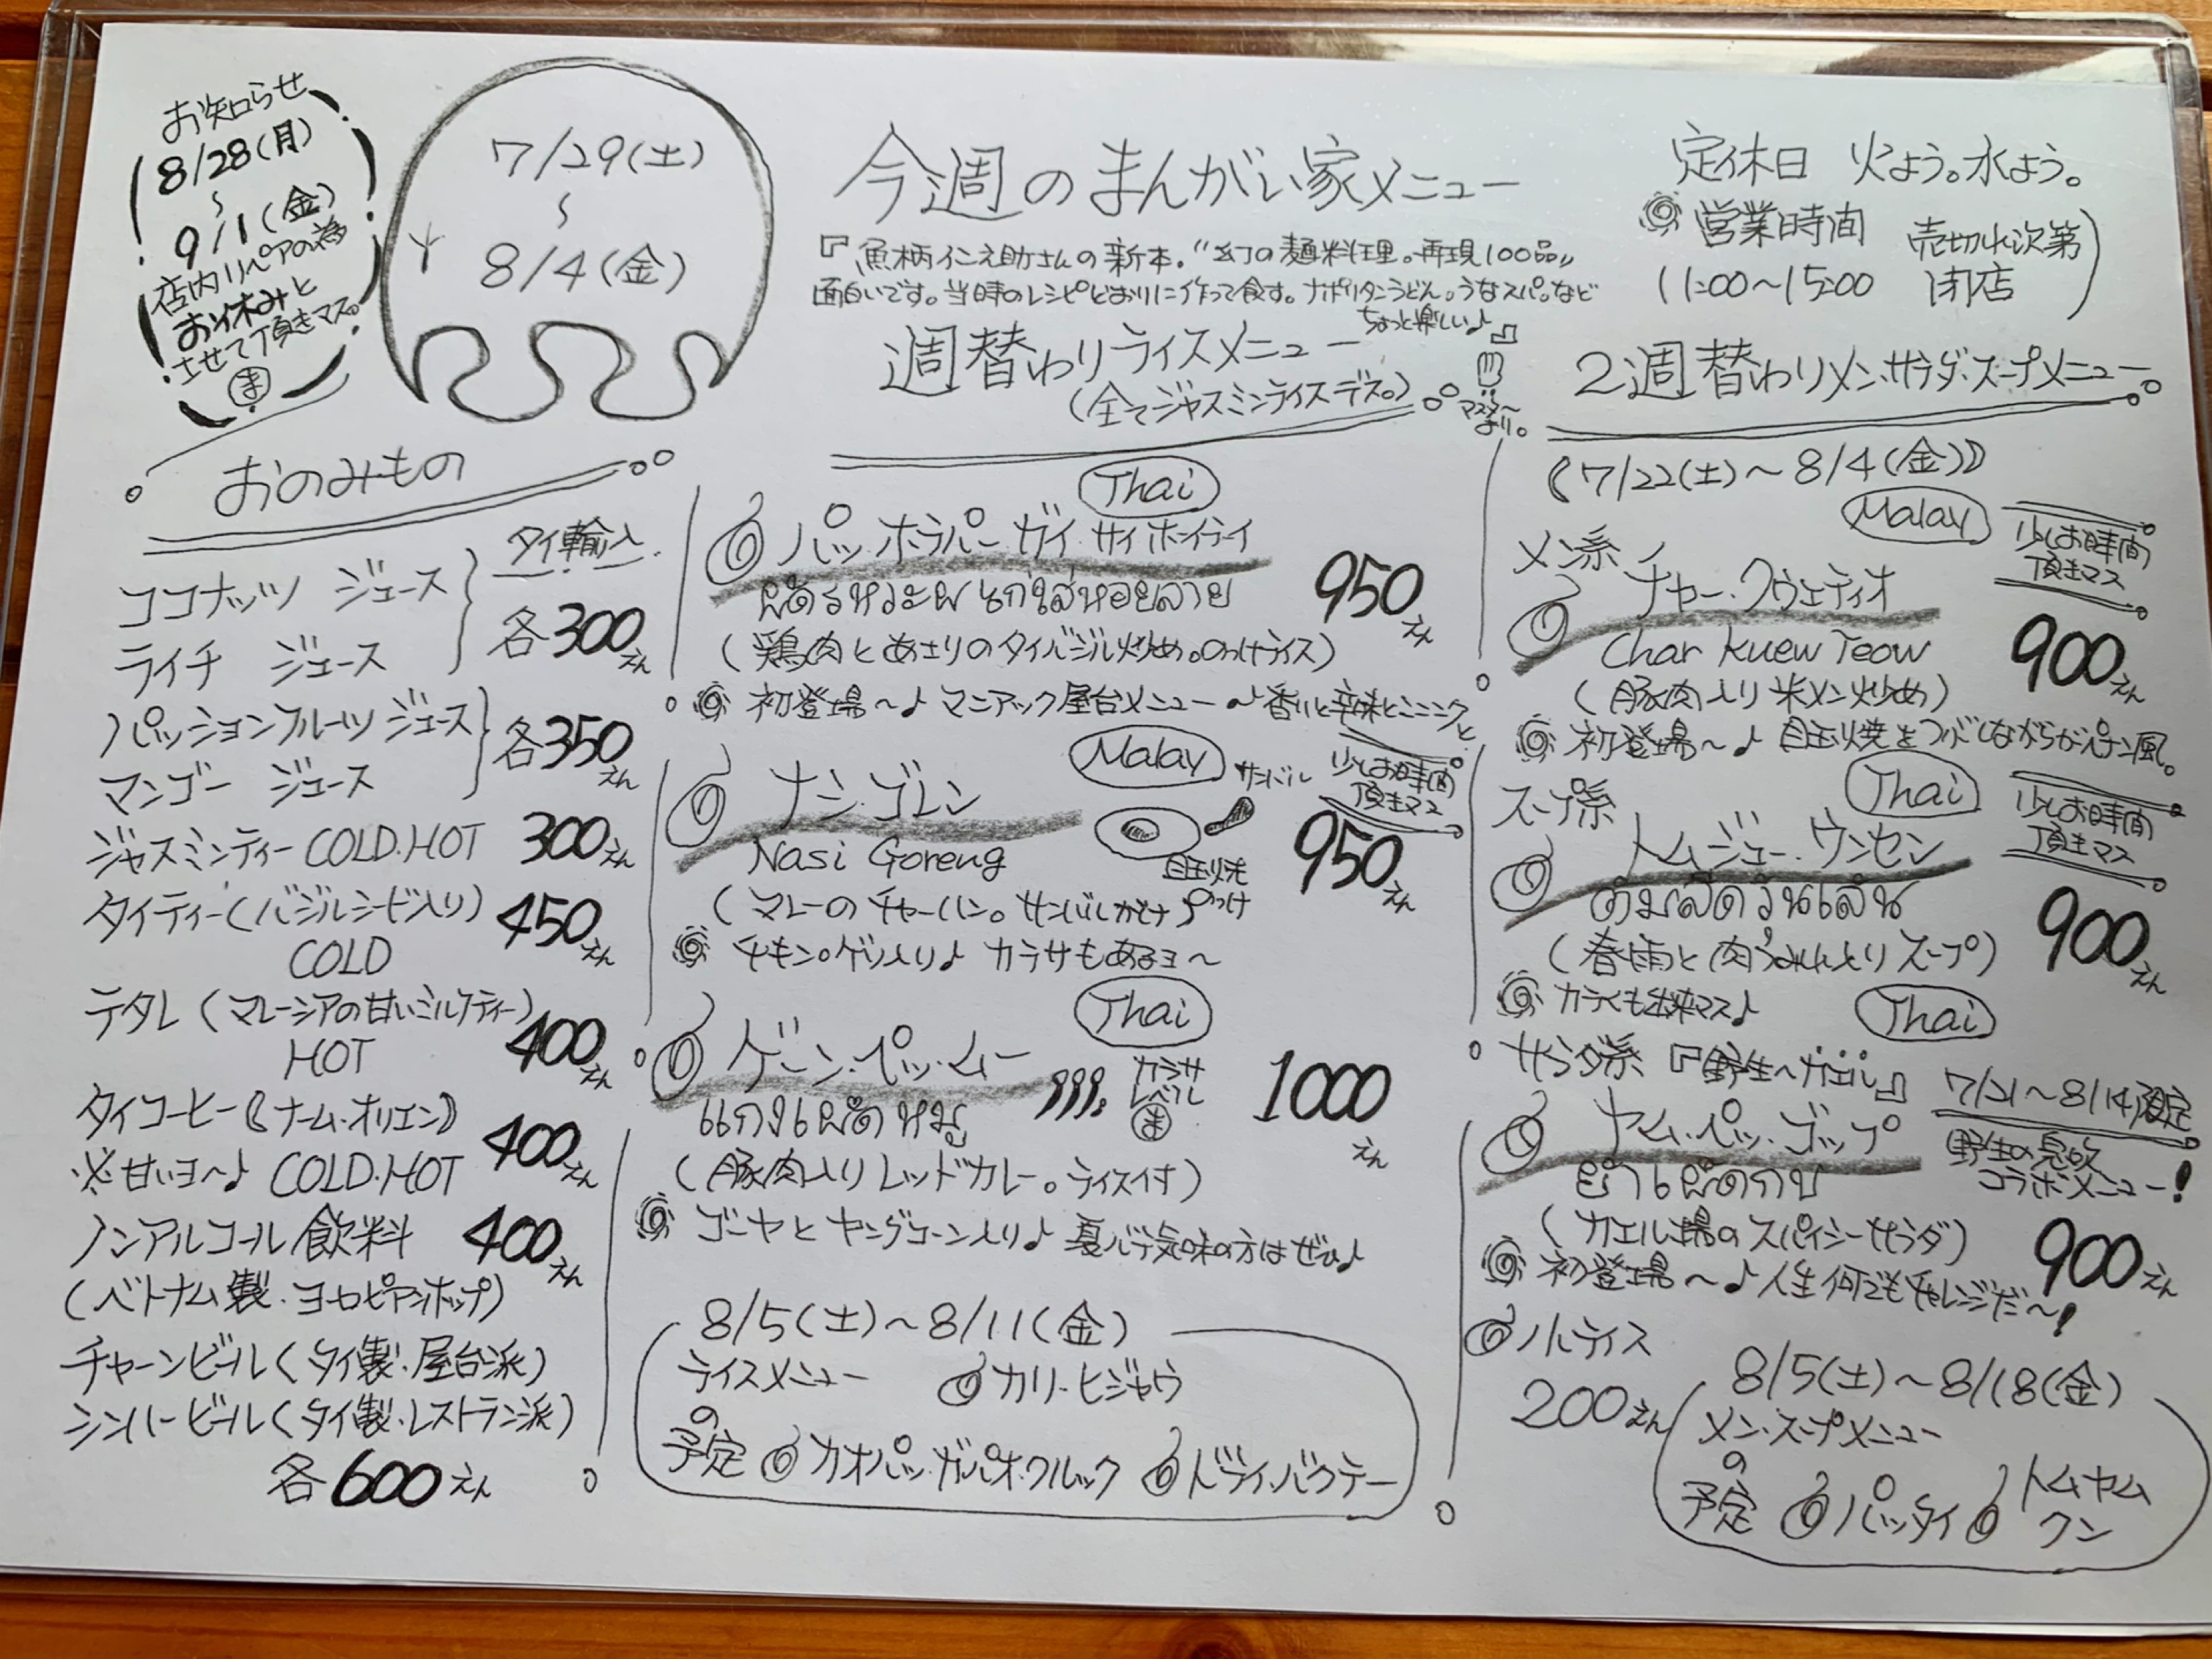 お知らせ
8/28(月)
〜
9/1(金)
店内リペアの為
お休みと
させて頂きマス。
ま
7/29(土)
〜
8/4(金)
今週のまんがい家メニュー
『魚柄仁之助さんの新本。"幻の麺料理。再現100品"
面白いです。当時のレシピどおりに作って食す。ナポリタンうどん。うなスパ。など
ちょっと楽しい♪』
マスターより。
定休日 火よう。水よう。
営業時間 売切れ次第
11:00〜15:00 閉店
おのみもの
タイ輸入
ココナッツ ジュース
ライチ ジュース
各300えん
パッションフルーツ ジュース
マンゴー ジュース
各350えん
ジャスミンティー COLD.HOT 300えん
タイティー(バジルシード入り) 450えん
COLD
テタレ(マレーシアの甘いミルクティー)
HOT 400えん
タイコーヒー《ナーム・オリエン》
※甘いヨ〜♪ COLD.HOT 400えん
ノンアルコール飲料 400えん
(ベトナム製・ヨーロピアンホップ)
チャーンビール(タイ製・屋台派)
シンハービール(タイ製・レストラン派)
各600えん
週替わりライスメニュー
(全てジャスミンライスデス。)
Thai
パッ・ホラパー・ガイ・サイ ホイラーイ
ผัดโหระพาไก่ใส่หอยลาย
950えん
(鶏肉とあさりのタイバジル炒め。のっけライス)
初登場〜♪ マニアック屋台メニュー〜♪ 香りと辛味とニンニクと
Malay
ナシ・ゴレン
サンバル
少しお時間
頂きマス
Nasi Goreng
目玉焼
950えん
(マレーのチャーハン。サンバルがけ のっけ
チキン。ゲソ入り♪ カラサもあるヨ〜
Thai
ゲーン・ペッ・ムー
แกงเผ็ดหมู
カラサ
レベル
ま
1000えん
(豚肉入りレッドカレー。ライス付)
ゴーヤとヤングコーン入り♪ 夏バテ気味の方はぜひ♪
8/5(土)〜8/11(金)
ライスメニュー
の
予定
カリーヒジャウ
カオパッ・ガパオ・クルック
ドライ・バクテー
2週替わりメン・サラダ・スープメニュー。
《7/22(土)〜8/4(金)》
Malay
少しお時間
頂きマス
メン系
チャー・クウェティオ
Char Kuew Teow
900えん
(豚肉入り米メン炒め)
初登場〜♪ 目玉焼をつぶしながらがパチン風。
Thai
少しお時間
頂きマス
スープ系
トムジュー・ウンセン
ต้มจืดวุ้นเส้น
900えん
(春雨と肉うみれ入りスープ)
カラくも出来マス♪
Thai
サラダ系『野生〜カエル』
7/21〜8/14限定
野生の息吹
コラボメニュー!
ヤム・ペッ・ゴップ
ยำเผ็ดกบ
(カエル揚のスパイシーサラダ)
900えん
初登場〜♪ 人生何でもチャレンジだ〜!
小ライス
200えん
8/5(土)〜8/18(金)
メン・スープメニュー
の
予定
パッタイ
トムヤム
クン